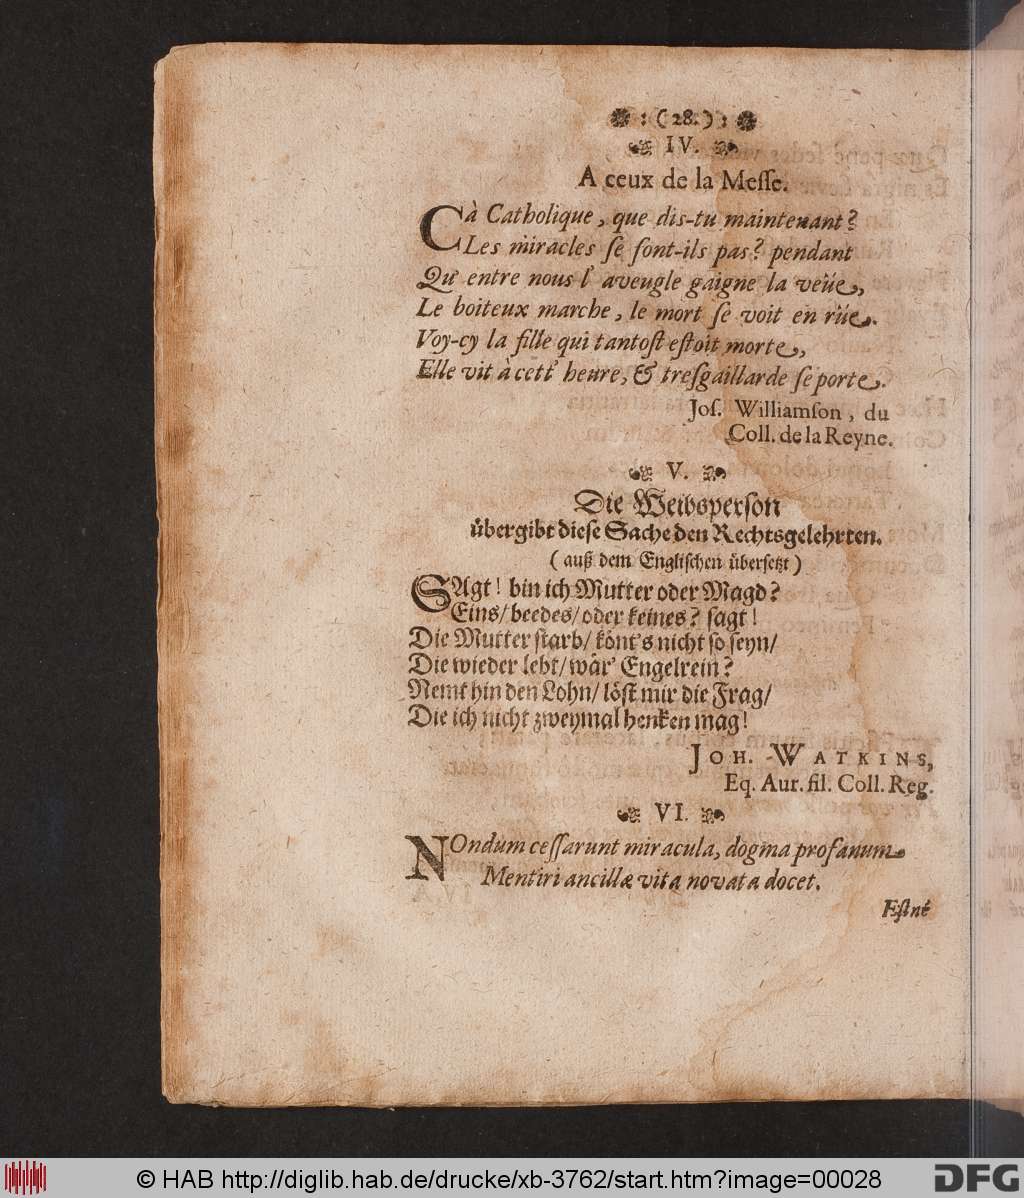 : (28.) :
IV.
A ceux de la Meſſe.
Cà Catholique, que dis-tu maintenant?
Les miracles ſe font-ils pas? pendant
Qu' entre nous l' aveugle gaigne la veüe,
Le boiteux marche, le mort ſe voit en rüe.
Voy-cy la fille qui tantoſt eſtoit morte,
Elle vit à cett' heure, & treſgaillarde ſe porte.
Joſ. Williamſon, du
Coll. de la Reyne.
V.
Die Weibsperſon
übergibt dieſe Sache den Rechtsgelehrten.
(auß dem Engliſchen überſetzt)
SAgt! bin ich Mutter oder Magd?
Eins/ beedes/ oder keines? ſagt!
Die Mutter ſtarb/ könt's nicht ſo ſeyn/
Die wieder lebt/ wär' Engelrein?
Nemt hin den Lohn/ löſt mir die Frag/
Die ich nicht zweymal henken mag!
JOH. WATKINS,
Eq. Aur. fil. Coll. Reg.
VI.
NOndum ceſſarunt miracula, dogma profanum
Mentiri ancillæ vita novata docet.
Eſtné
© HAB http://diglib.hab.de/drucke/xb-3762/start.htm?image=00028
DFG